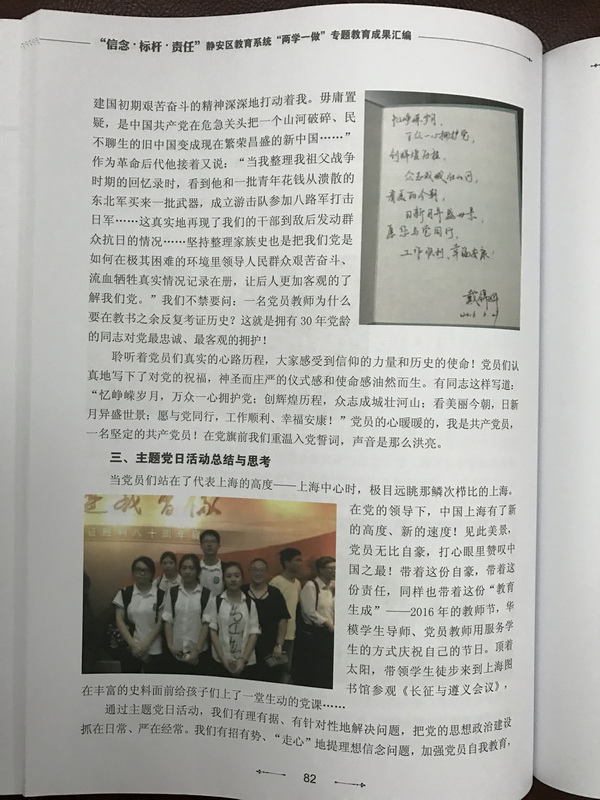 “信念·标杆·责任”静安区教育系统“两学一做”专题教育成果汇编
建国初期艰苦奋斗的精神深深地打动着我。毋庸置
疑，是中国共产党在危急关头把一个山河破碎、民
不聊生的旧中国变成现在繁荣昌盛的新中国……”
作为革命后代他接着又说：“当我整理我祖父战争
时期的回忆录时，看到他和一批青年花钱从溃散的
东北军买来一批武器，成立游击队参加八路军打击
日军……这真实地再现了我们的干部到敌后发动群
众抗日的情况……坚持整理家族史也是把我们党是
如何在极其困难的环境里领导人民群众艰苦奋斗、
流血牺牲真实情况记录在册，让后人更加客观的了
解我们党。”我们不禁要问：一名党员教师为什么
要在教书之余反复考证历史？这就是拥有30年党龄
的同志对党最忠诚、最客观的拥护！
忆峥嵘岁月，
万众一心拥护党，
创辉煌历程，
众志成城壮山河，
看美丽今朝，
日新月异盛世景，
愿您与党同行，
工作顺利、幸福安康！
聆听着党员们真实的心路历程，大家感受到信仰的力量和历史的使命！党员们认
真地写下了对党的祝福，神圣而庄严的仪式感和使命感油然而生。有同志这样写道：
“忆峥嵘岁月，万众一心拥护党；创辉煌历程，众志成城壮河山；看美丽今朝，日新
月异盛世景；愿与党同行，工作顺利、幸福安康！”党员的心暖暖的，我是共产党员，
一名坚定的共产党员！在党旗前我们重温入党誓词，声音是那么洪亮。
三、主题党日活动总结与思考
当党员们站在了代表上海的高度——上海中心时，极目远眺那鳞次栉比的上海。
在党的领导下，中国上海有了新
的高度、新的速度！见此美景，
党员无比自豪，打心眼里赞叹中
国之最！带着这份自豪，带着这
份责任，同样也带着这份“教育
生成”——2016年的教师节，华
模学生导师、党员教师用服务学
生的方式庆祝自己的节日。顶着
太阳，带领学生徒步来到上海图
书馆参观《长征与遵义会议》，
在丰富的史料面前给孩子们上了一堂生动的党课……
通过主题党日活动，我们有理有据、有针对性地解决问题，把党的思想政治建设
抓在日常、严在经常。我们有招有势、“走心”地提理想信念问题，加强党员自我教育，
82